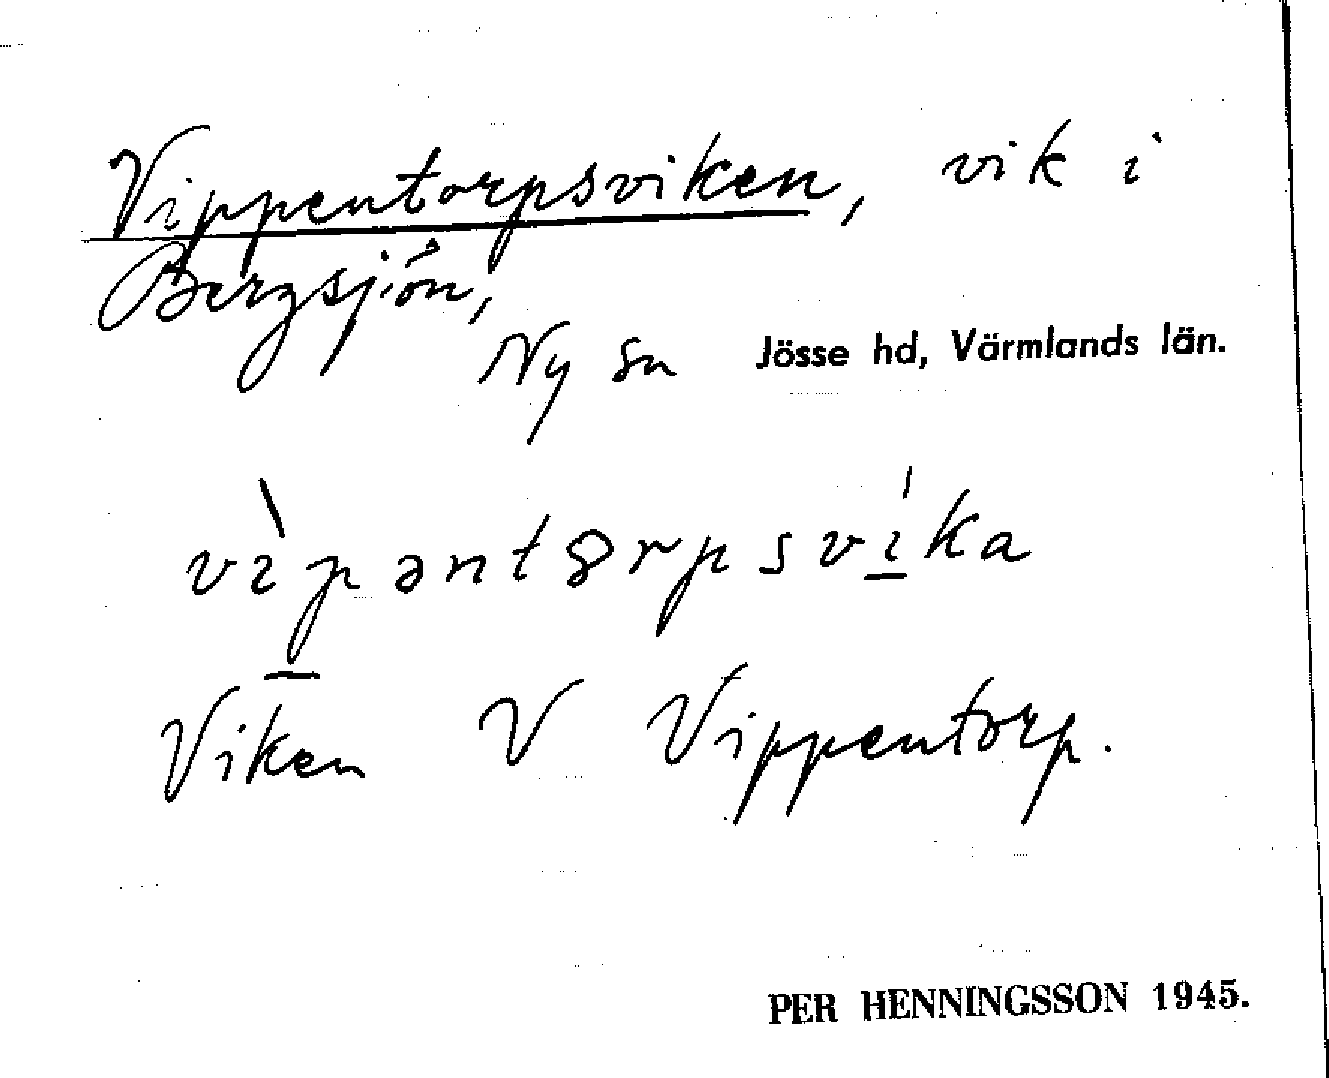 Vippentorpsviken, vik i
Bergsjön,
Ny sn Jösse hd, Värmlands län.
Viken V Vippentorp.
PER HENNINGSSON 1945.